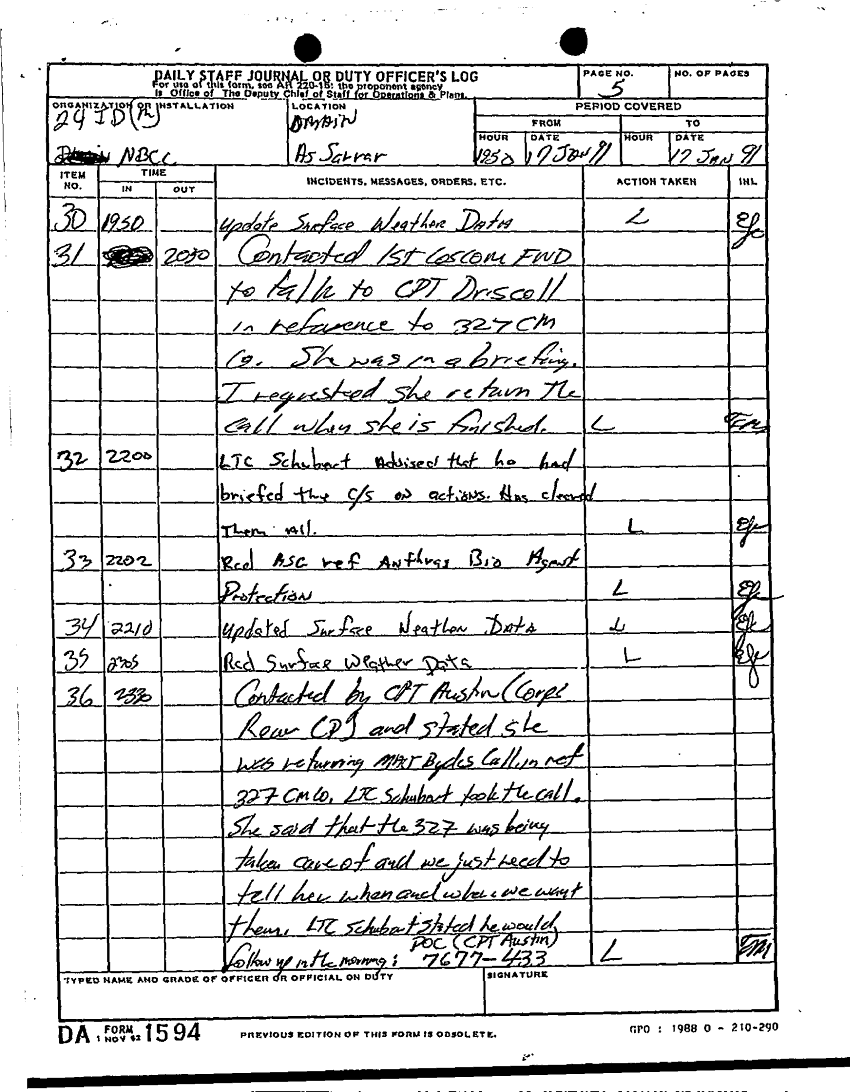 DAILY STAFF JOURNAL OR DUTY OFFICER'S LOG
For use of this form, see AR 220-15; the proponent agency
is Office of The Deputy Chief of Staff for Operations & Plans.
PAGE NO.
5
NO. OF PAGES
ORGANIZATION OR INSTALLATION
24 ID(M)
NBCC
LOCATION
DMAIN
As Sarrar
PERIOD COVERED
FROM
TO
HOUR
DATE
HOUR
DATE
1950
17 JAN 91
17 JAN 91
ITEM NO.
TIME
IN
OUT
INCIDENTS, MESSAGES, ORDERS, ETC.
ACTION TAKEN
INL
30 1950 Update Surface Weather Data L
31 2030 Contacted 1ST COSCOM FWD
to talk to CPT Driscoll
in reference to 327 CM
Co. She was in a briefing.
I requested she return the
call when she is finished. L
32 2200 LTC Schubart Advised that he had
briefed the C/S on actions. Has cleared
Them All. L
33 2202 Rcd ASC ref Anthrax Bio Agent
Protection L
34 2210 Updated Surface Weather Data L
35 2305 Rcd Surface Weather Data L
36 2330 Contacted by CPT Austin (Corps
Rear CP) and stated she
was returning Call in ref
327 CM Co. LTC Schubart took the call.
She said that the 327 was being
taken care of and we just need to
tell her when and where we want
them. LTC Schubart stated he would
follow up in the morning; POC (CPT Austin)
7677-433 L
TYPED NAME AND GRADE OF OFFICER OR OFFICIAL ON DUTY
SIGNATURE
DA FORM 1594
1 NOV 62
PREVIOUS EDITION OF THIS FORM IS OBSOLETE.
GPO : 1988 O - 210-290